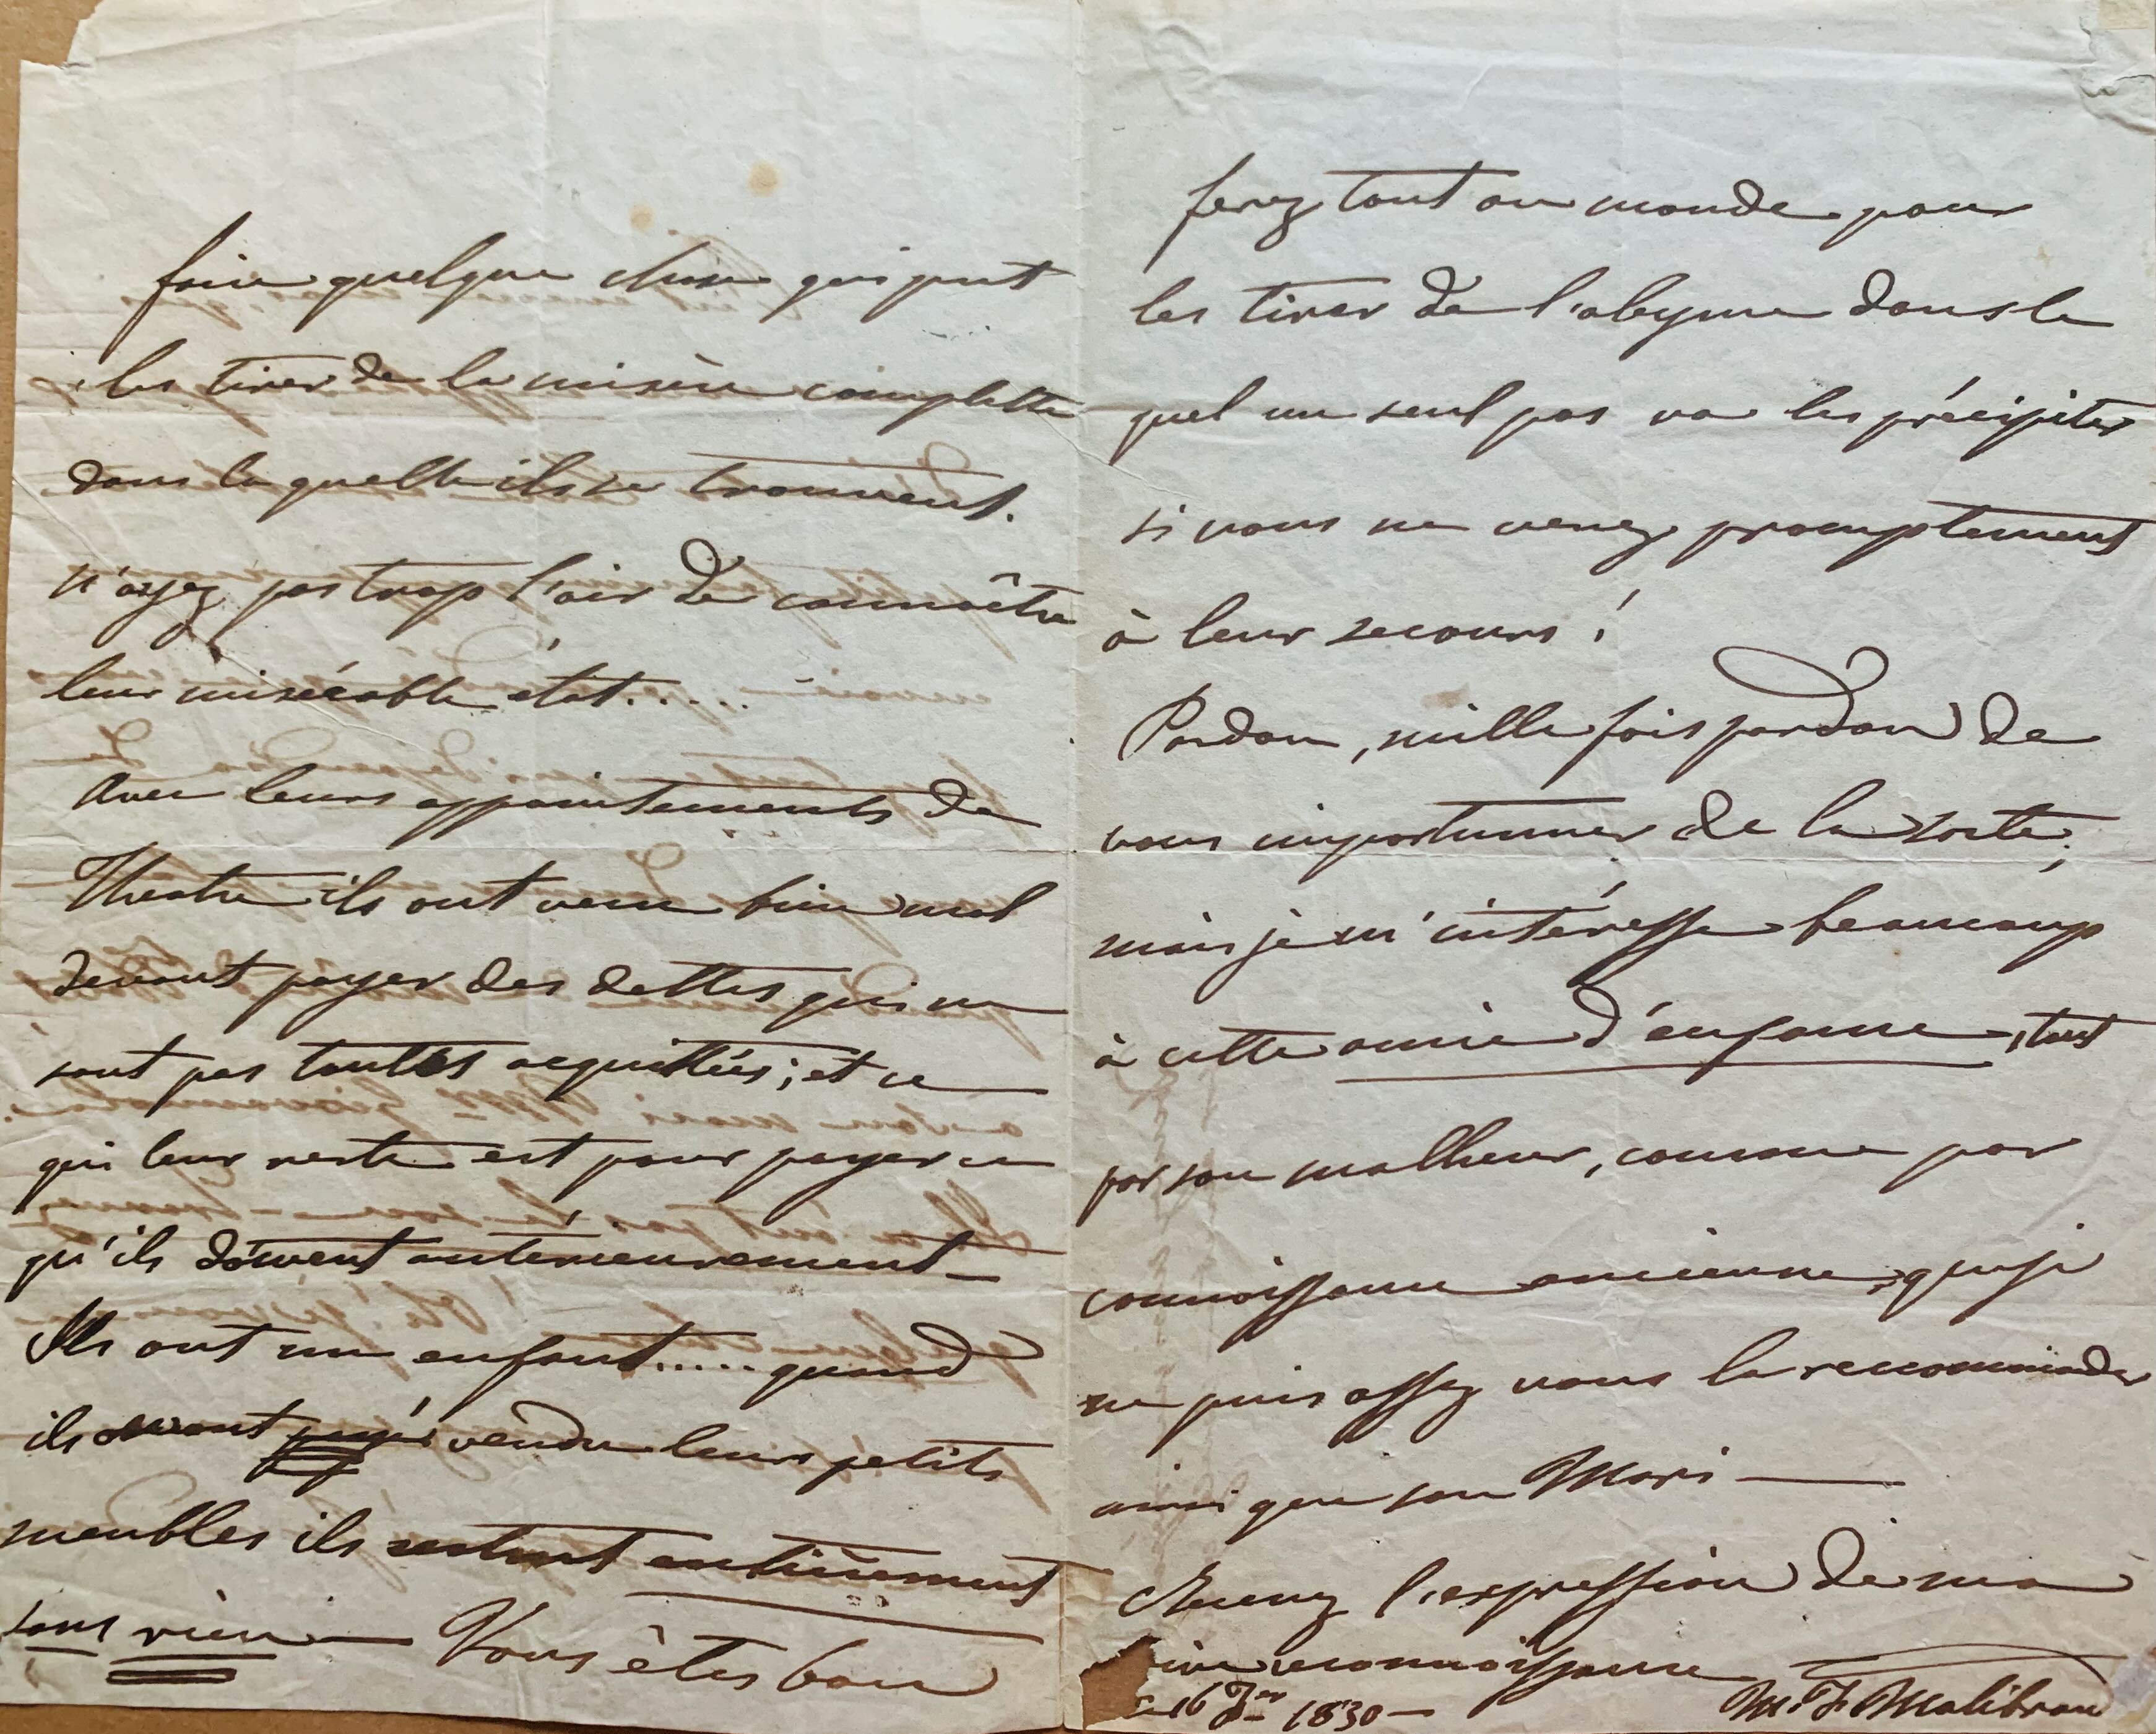 faire quelque chose qui put
les tirer de la misère complette
dans la quelle ils se trouvent.
N'ayez pas trop l'air de connaître
leur misérable état.....
Avec leurs appointements de
Theatre ils ont vecu bien mal
devant payer des dettes qui ne
sont pas toutes acquittées; et ce
qui leur reste est pour payer ce
qu'ils doivent anterieurement —
Ils ont un enfant..... quand
ils auront payé vendu leurs petits
meubles ils restent entièrement
sans rien — Vous êtes bon
ferez tout au monde pour
les tirer de l'abyme dans le
quel un seul pas va les précipiter
si vous ne venez promptement
à leur secours!
Pardon, mille fois pardon de
vous importunner de la sorte;
mais je m'intéresse beaucoup
à cette amie d'enfance, tant
par son malheur, comme par
connoissance ancienne, que je
ne puis assez vous la recommander
ainsi que son Mari —
Recevez l'expression de ma
reconnoissance
16 1830 — M. F. Malibran